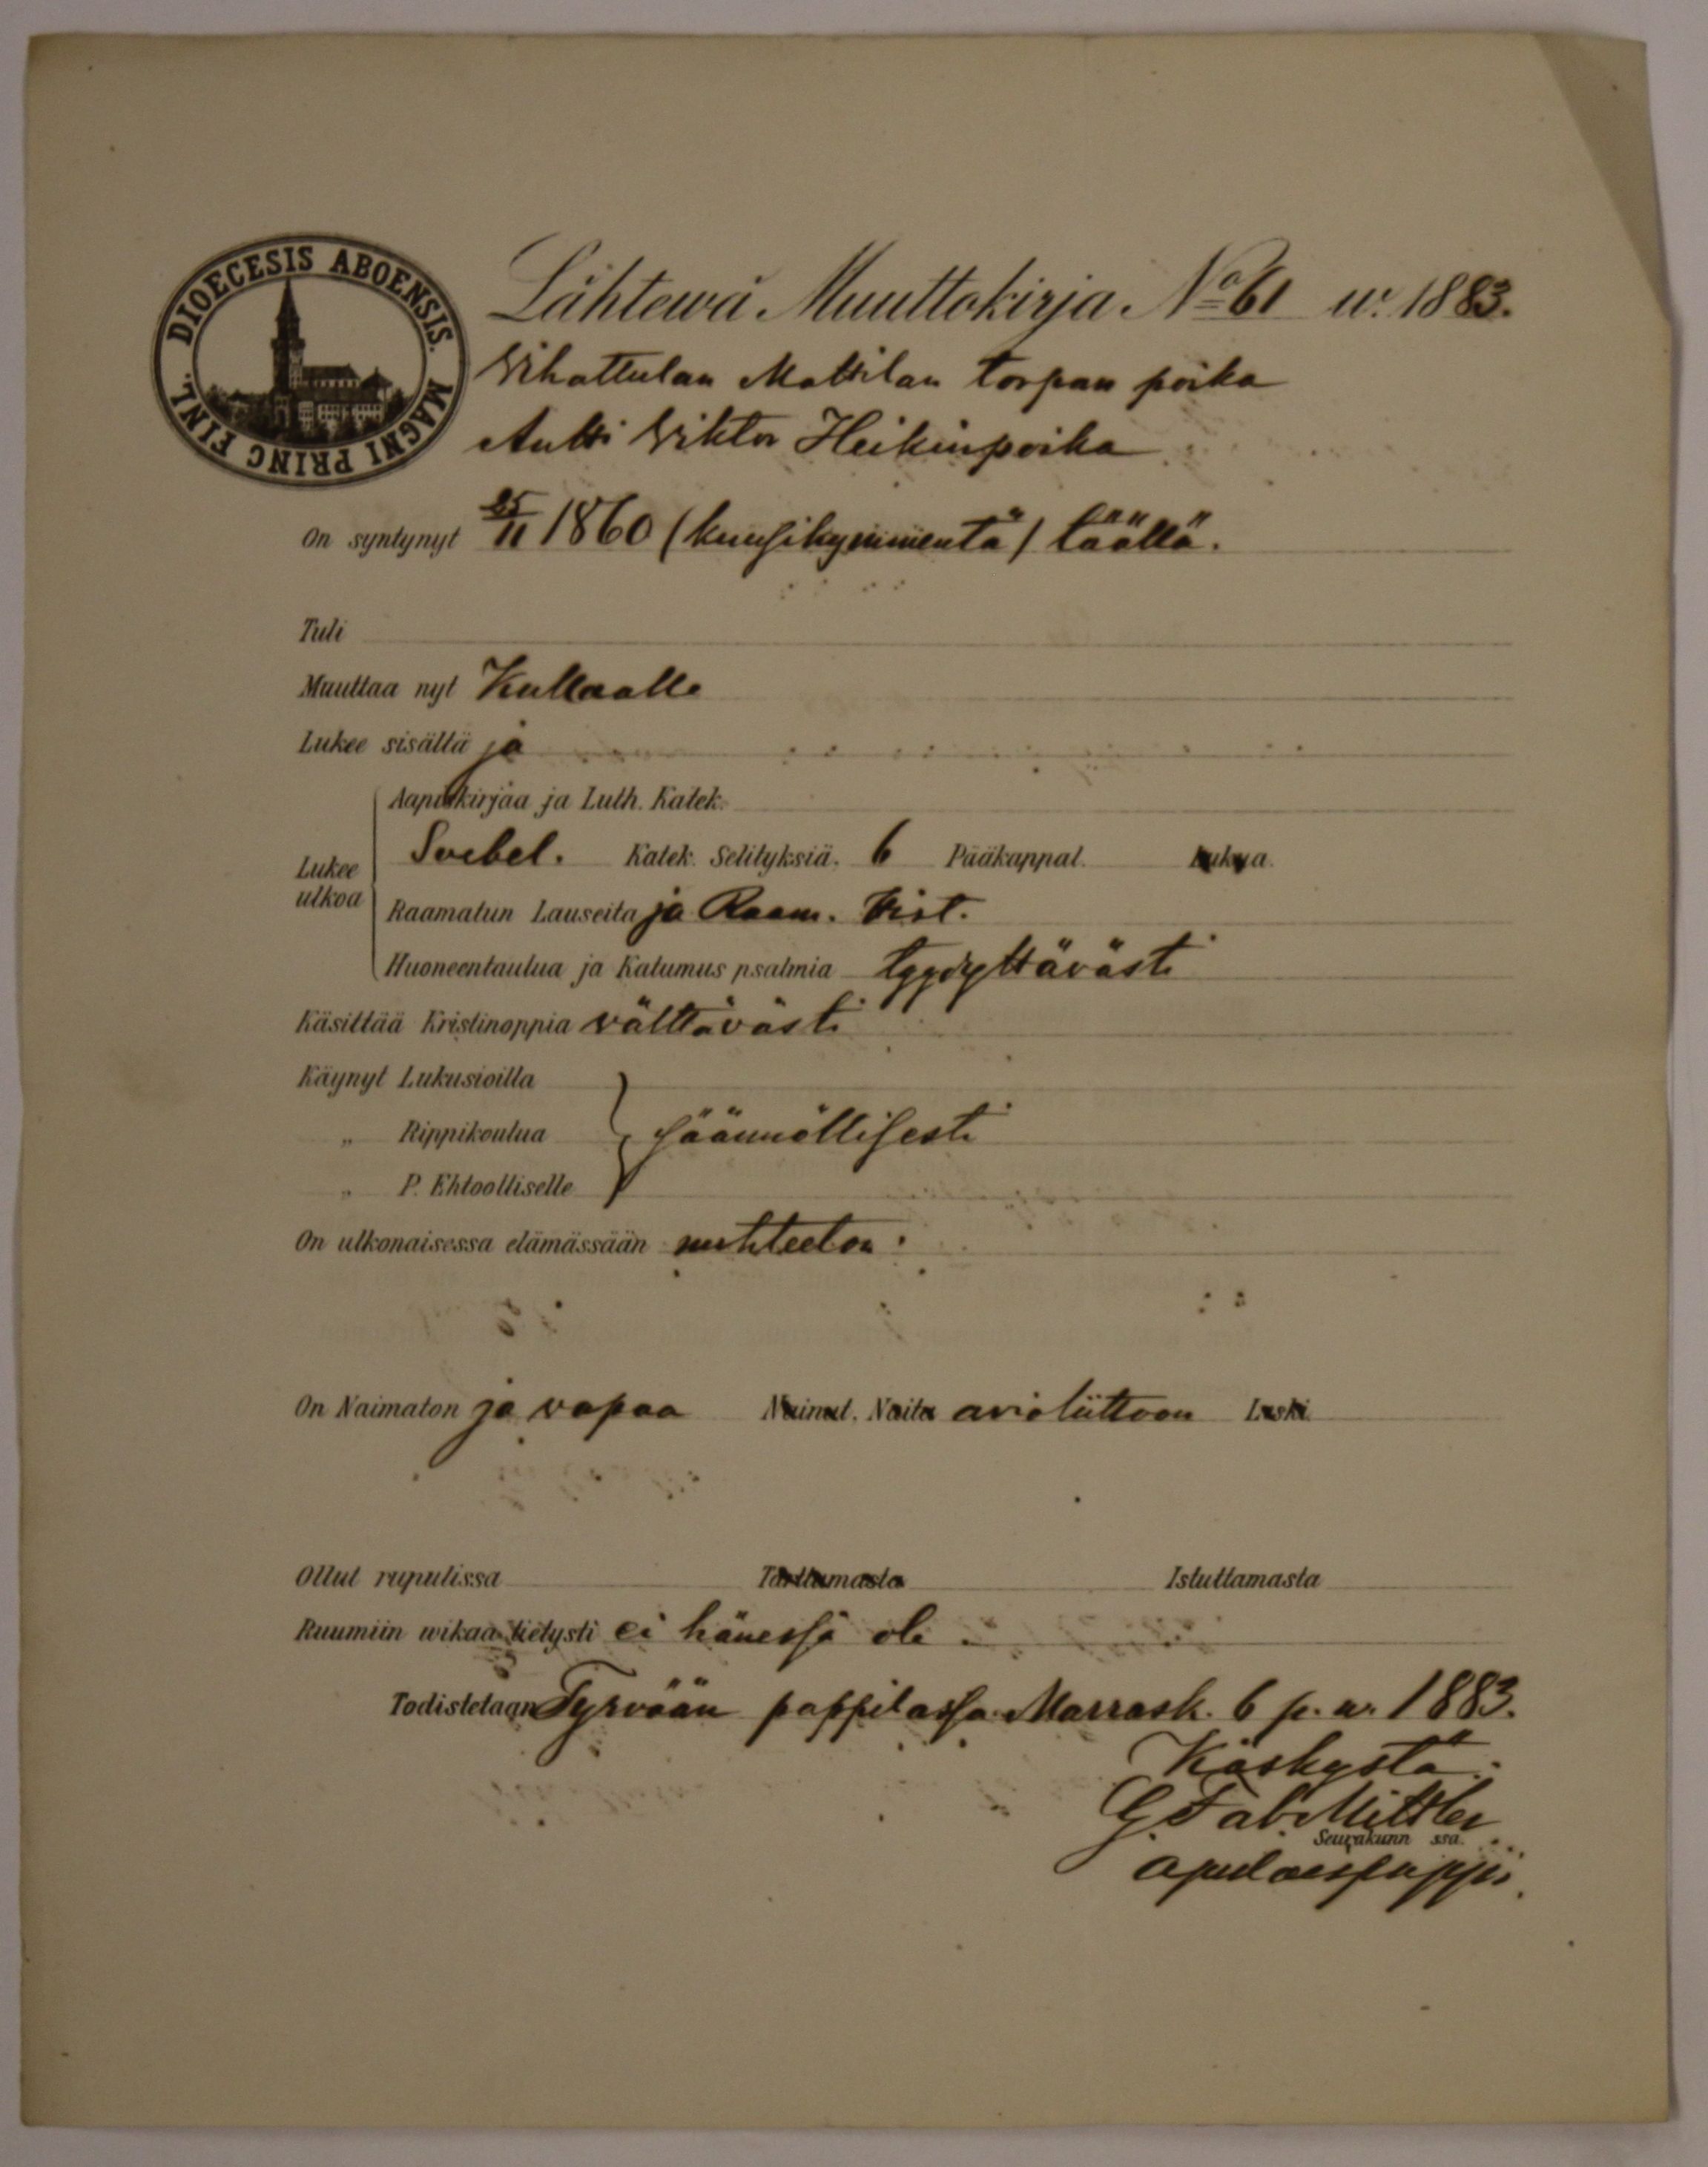 DIOECESIS ABOENSIS. MAGNI PRINC FINL.
Lähtewä Muuttokirja No 61 w. 1883.
Vihattulan Mattilan torpan poika
Antti Viktor Heikinpoika
On syntynyt 25/11 1860 (kuusikymmentä) täällä.
Tuli
Muuttaa nyt Kullaalle
Lukee sisältä ja
Aapiskirjaa ja Luth. Katek.
Lukee ulkoa Svebel. Katek. Selityksiä. 6 Pääkappal. Lukua.
Raamatun Lauseita ja Raam. Hist.
Huoneentaulua ja Katumus psalmia tyydyttävästi
Käsittää Kristinoppia välttävästi
Käynyt Lukusioilla
„ Rippikoulua säännöllisesti
„ P. Ehtoolliselle
On ulkonaisessa elämässään nuhteeton.
On Naimaton ja vapaa Nainut. Naita avioliittoon Leski.
Ollut rupulissa Tarttumasta Istuttamasta
Ruumiin wikaa tietysti ei hänessä ole.
Todistetaan Tyrvään pappilassa Marrask. 6 p. w. 1883.
Käskystä:
G. Fab. Mittler
Seurakunn ssa.
apulaispappi.